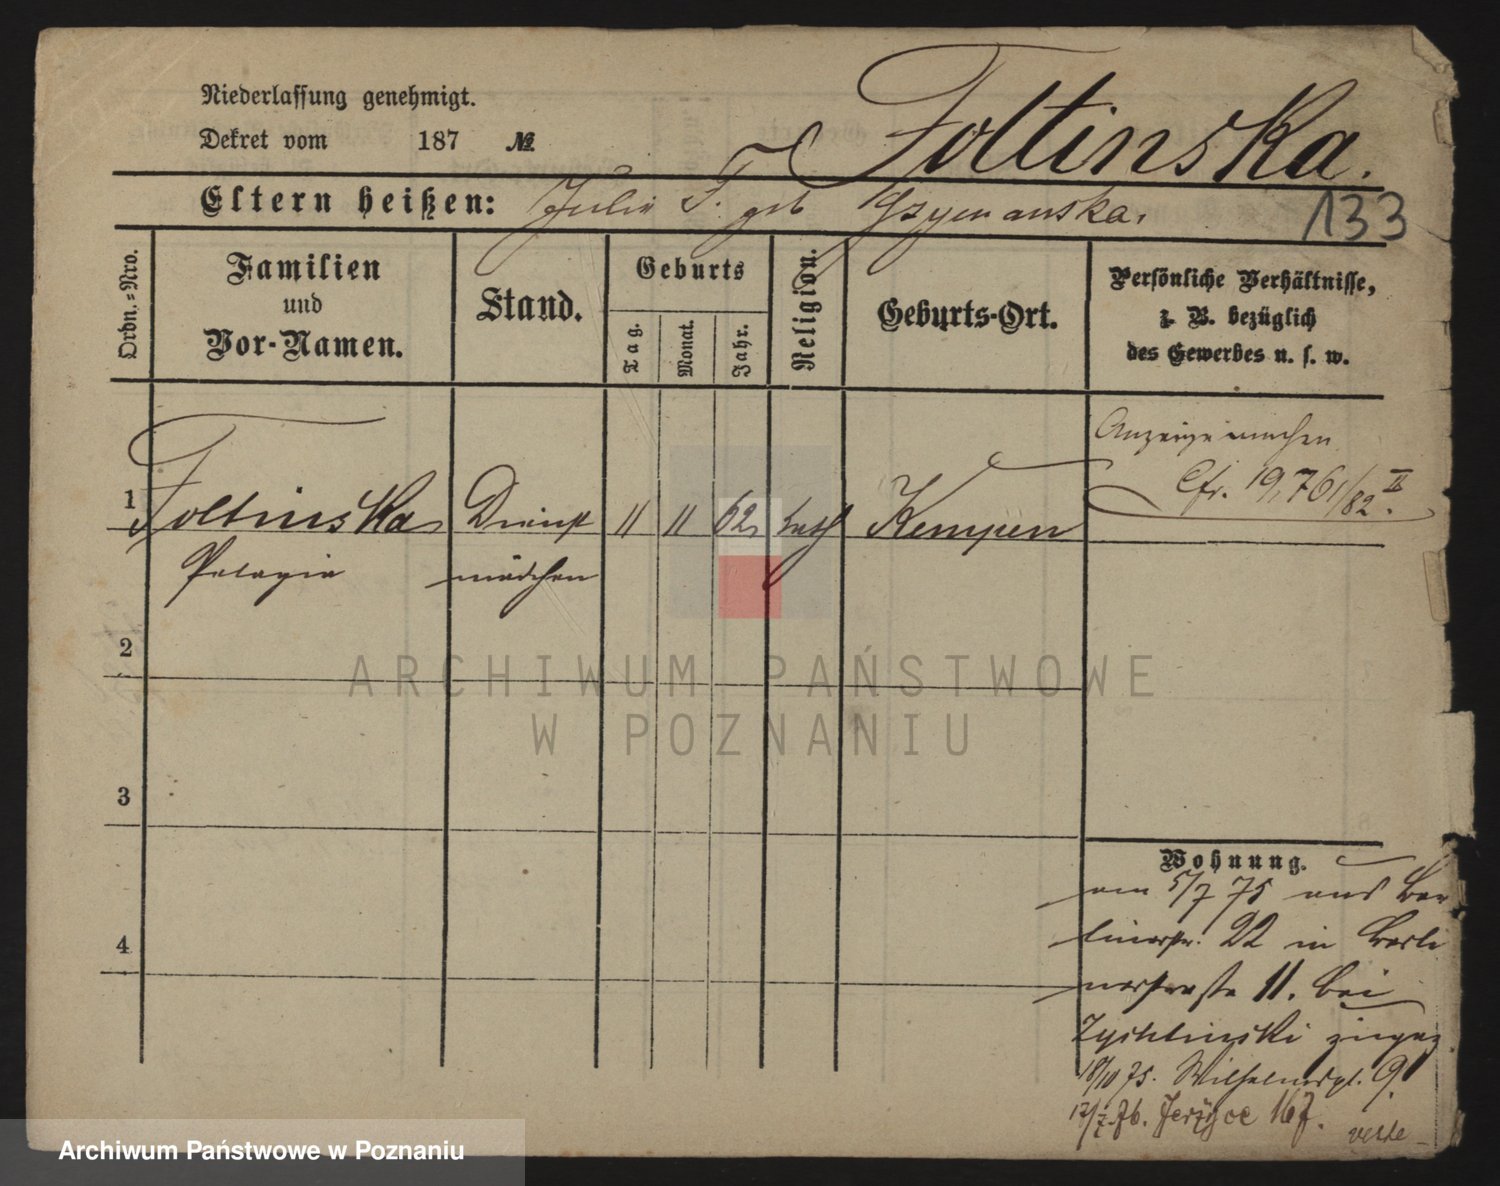 Niederlassung genehmigt.
Dekret vom 187 №
Foltinska.
Eltern heißen: Julie F. geb Szymanska.
133
Ordn.=Nro.
Familien
und
Vor-Namen.
Stand.
Geburts
Tag.
Monat.
Jahr.
Religion.
Geburts-Ort.
Persönliche Verhältnisse,
z. B. bezüglich
des Gewerbes u. s. w.
Anzeige machen
Cfr. 19,761/82 II.
1 Foltinska Dienst 11 11 62 kath Kempen
Pelagia mädchen
2
3
4
Wohnung.
am 5/7 75 aus Ber
linerstr. 22 in Berli
nerstraße 11. bei
Zychlinski zugez
18/10 75. Wilhelmspl. 9.
12/7 76. Jerzyce 167.
verte
ARCHIWUM PAŃSTWOWE
W POZNANIU
Archiwum Państwowe w Poznaniu